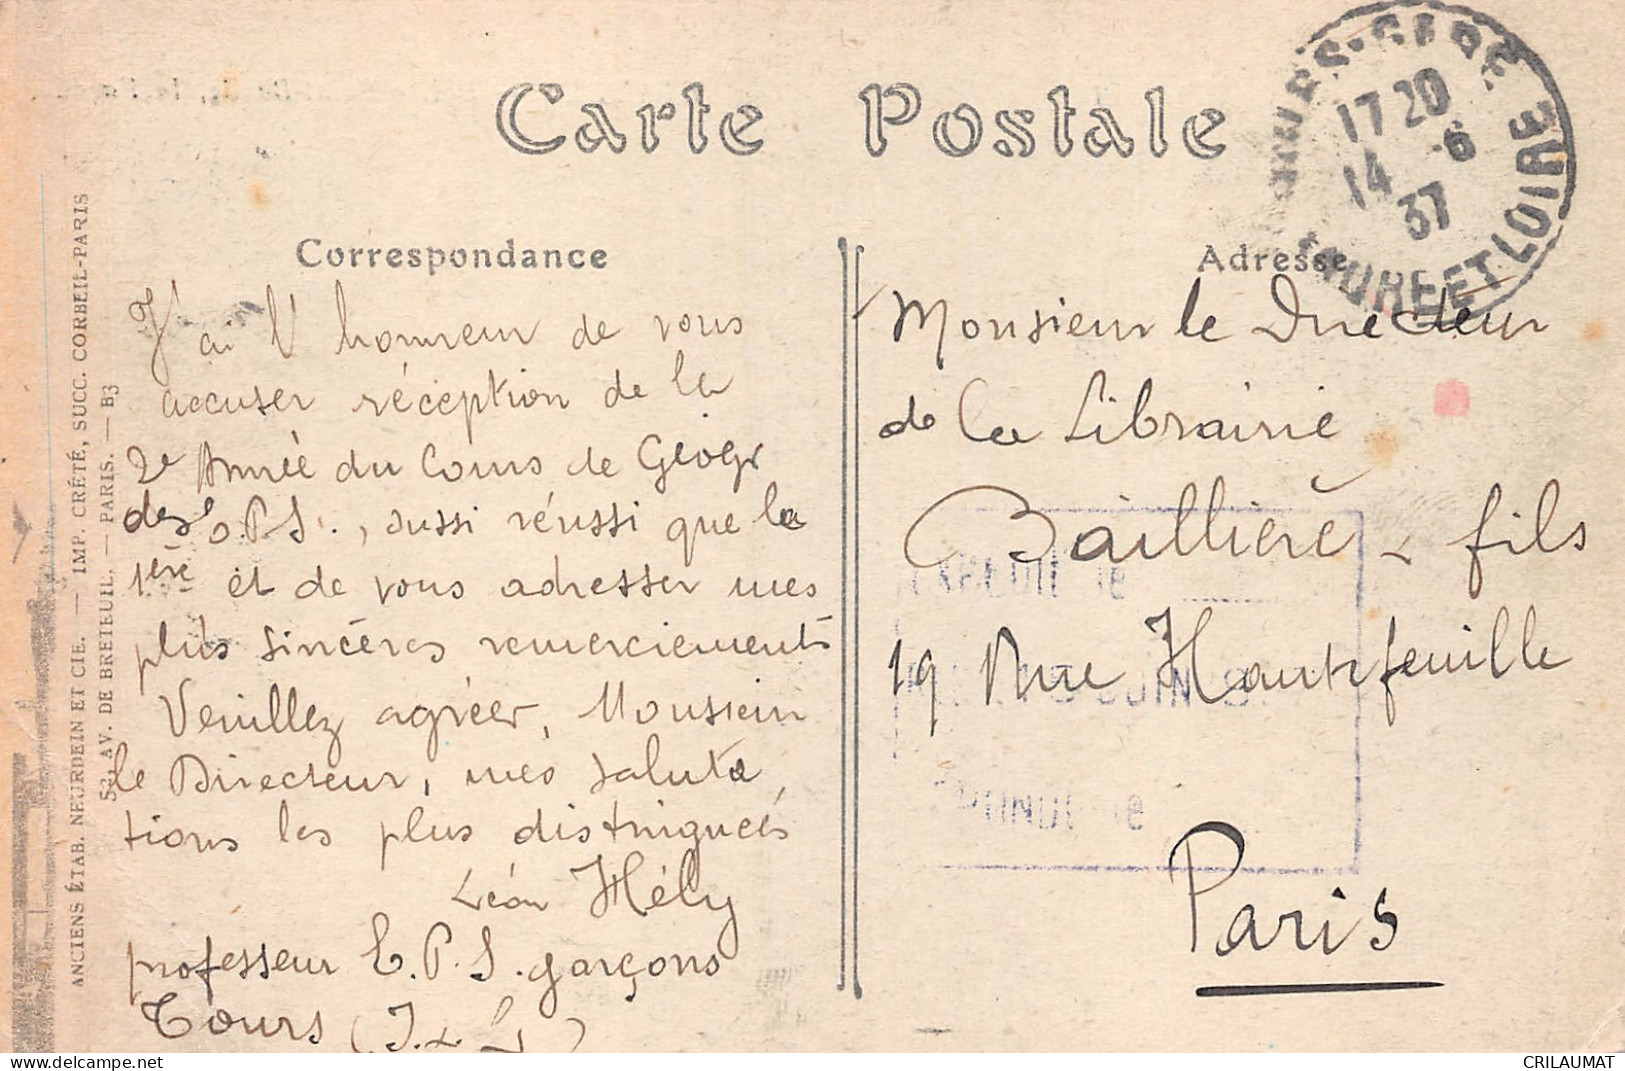 Carte Postale
TOURS-GARE
17 20
14 6
37
INDRE ET LOIRE
Correspondance
J'ai l'honneur de vous
accuser réception de la
2e Année du Cours de Géogr
des E.P.S., aussi réussi que la
1ère et de vous adresser mes
plus sincères remerciements
Veuillez agréer, Monsieur
le Directeur, mes saluta
tions les plus distinguées
Léon Hély
professeur E.P.S. garçons
Tours (I. & L)
Adresse
Monsieur le Directeur
de la Librairie
Baillière & fils
19 Rue Hautefeuille
Paris
ANCIENS ÉTAB. NEURDEIN ET CIE. — IMP. CRÉTÉ, SUCC. CORBEIL-PARIS
52, AV. DE BRETEUIL. — PARIS. — B3
https://www.delcampe.net
CRILAUMAT